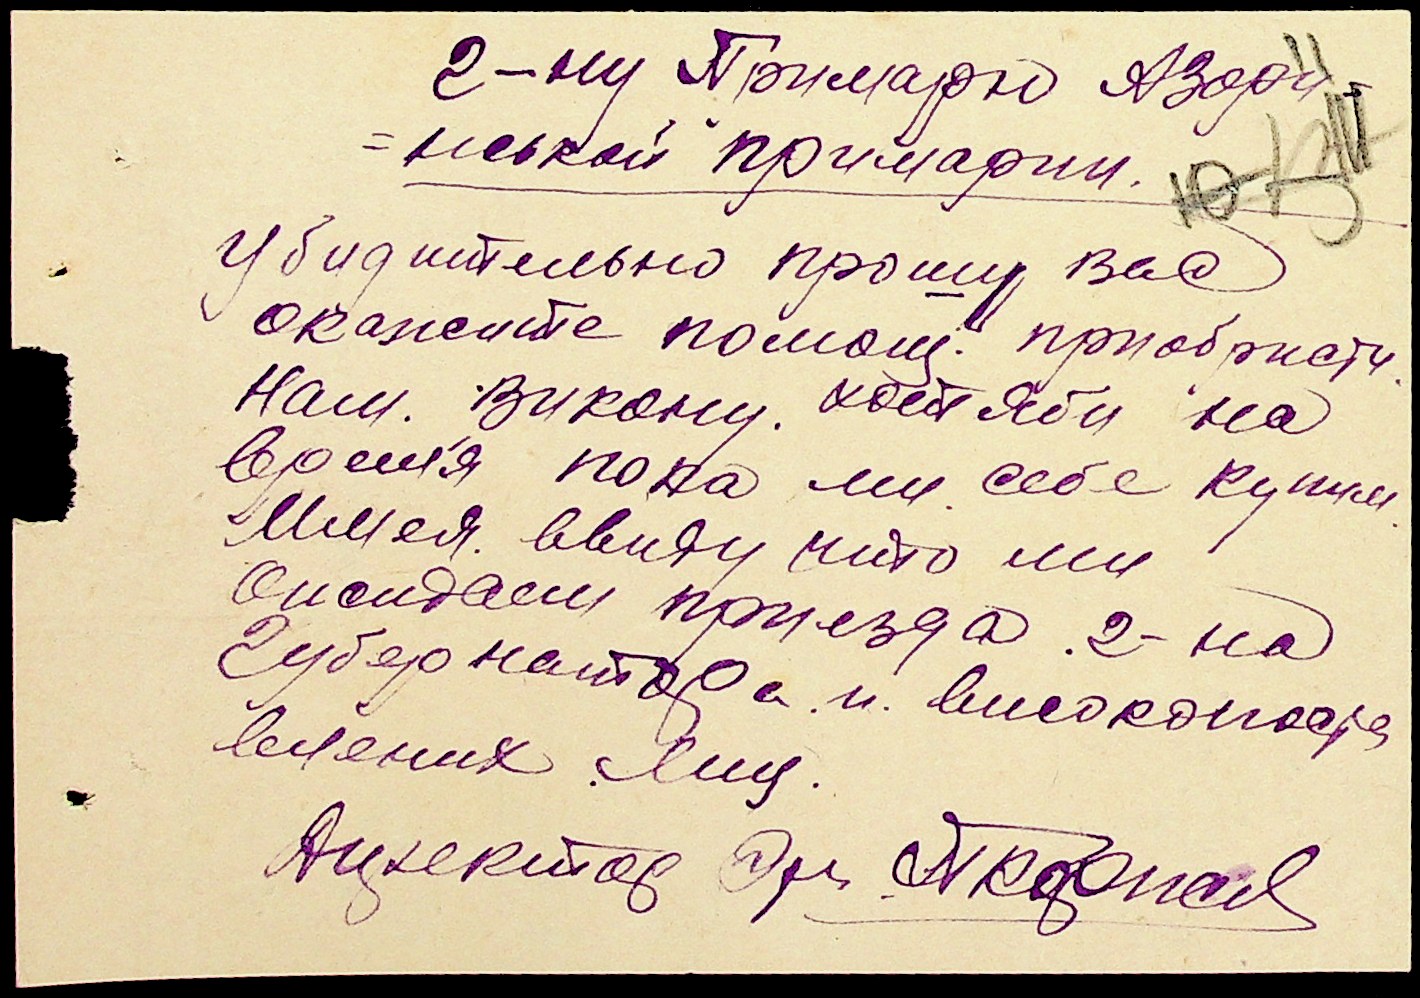 г-ну Примарю Азари-
=нськой примарии.
Убидительно прошу вас
окажите помощ. приобристи.
Нам. Викону. хотяби на
время пока ми себе купим.
Имея. ввиду что ми
ожидаем приезда г-на
Губернатора. и. високопоста
влених. лиц.
Директор